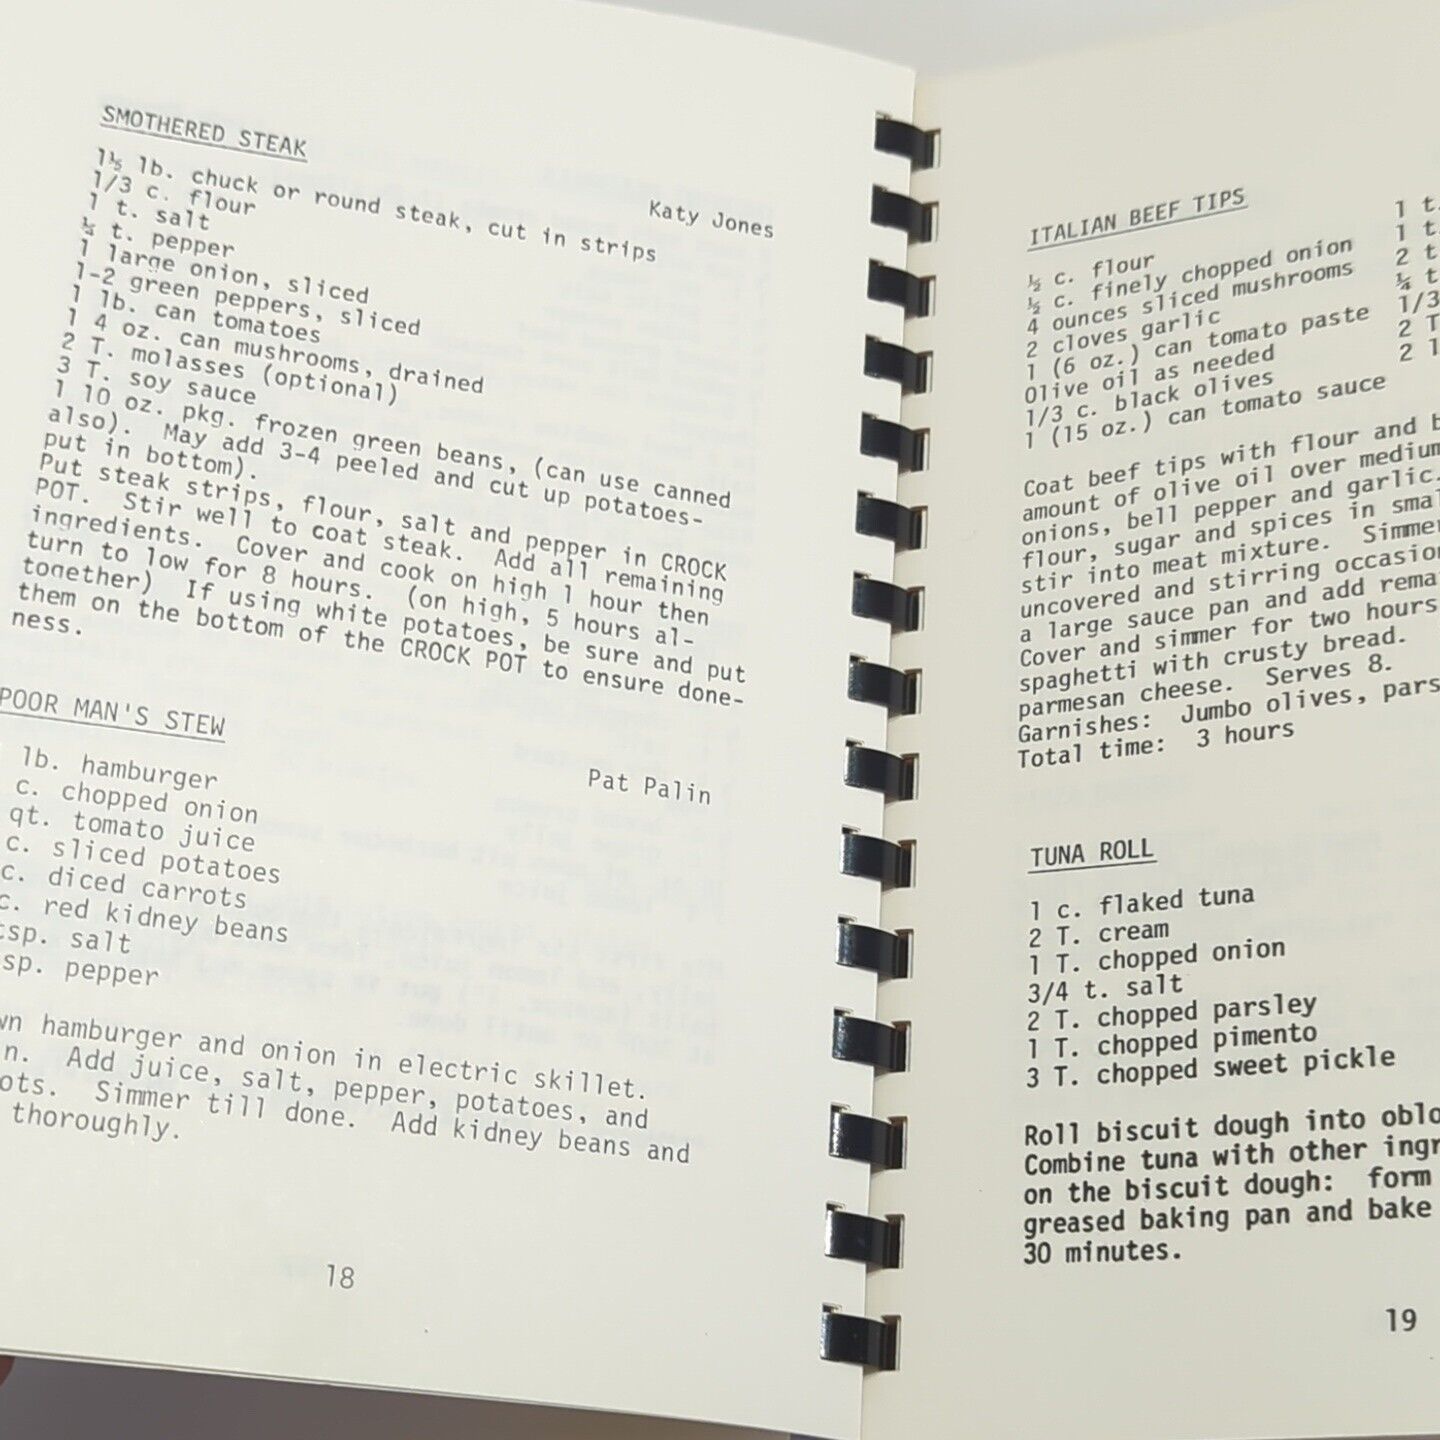 SMOTHERED STEAK
Katy Jones
1½ lb. chuck or round steak, cut in strips
1/3 c. flour
1 t. salt
½ t. pepper
1 large onion, sliced
1-2 green peppers, sliced
1 lb. can tomatoes
1 4 oz. can mushrooms, drained
2 T. molasses (optional)
3 T. soy sauce
1 10 oz. pkg. frozen green beans, (can use canned
also).  May add 3-4 peeled and cut up potatoes-
put in bottom).
Put steak strips, flour, salt and pepper in CROCK
POT.  Stir well to coat steak.  Add all remaining
ingredients.  Cover and cook on high 1 hour then
turn to low for 8 hours.  (on high, 5 hours al-
together)  If using white potatoes, be sure and put
them on the bottom of the CROCK POT to ensure done-
ness.
POOR MAN'S STEW
Pat Palin
lb. hamburger
c. chopped onion
qt. tomato juice
c. sliced potatoes
c. diced carrots
c. red kidney beans
tsp. salt
sp. pepper
wn hamburger and onion in electric skillet.
n.  Add juice, salt, pepper, potatoes, and
ots.  Simmer till done.  Add kidney beans and
thoroughly.
18
ITALIAN BEEF TIPS
½ c. flour
½ c. finely chopped onion
4 ounces sliced mushrooms
2 cloves garlic
1 (6 oz.) can tomato paste
Olive oil as needed
1/3 c. black olives
1 (15 oz.) can tomato sauce
1 t.
1 t.
2 t
¼ t
1/3
2 T
2 l
Coat beef tips with flour and b
amount of olive oil over medium
onions, bell pepper and garlic.
flour, sugar and spices in smal
stir into meat mixture.  Simmer
uncovered and stirring occasion
a large sauce pan and add rema
Cover and simmer for two hours
spaghetti with crusty bread.
parmesan cheese.  Serves 8.
Garnishes:  Jumbo olives, pars
Total time:  3 hours
TUNA ROLL
1 c. flaked tuna
2 T. cream
1 T. chopped onion
3/4 t. salt
2 T. chopped parsley
1 T. chopped pimento
3 T. chopped sweet pickle
Roll biscuit dough into oblo
Combine tuna with other ingr
on the biscuit dough:  form
greased baking pan and bake
30 minutes.
19